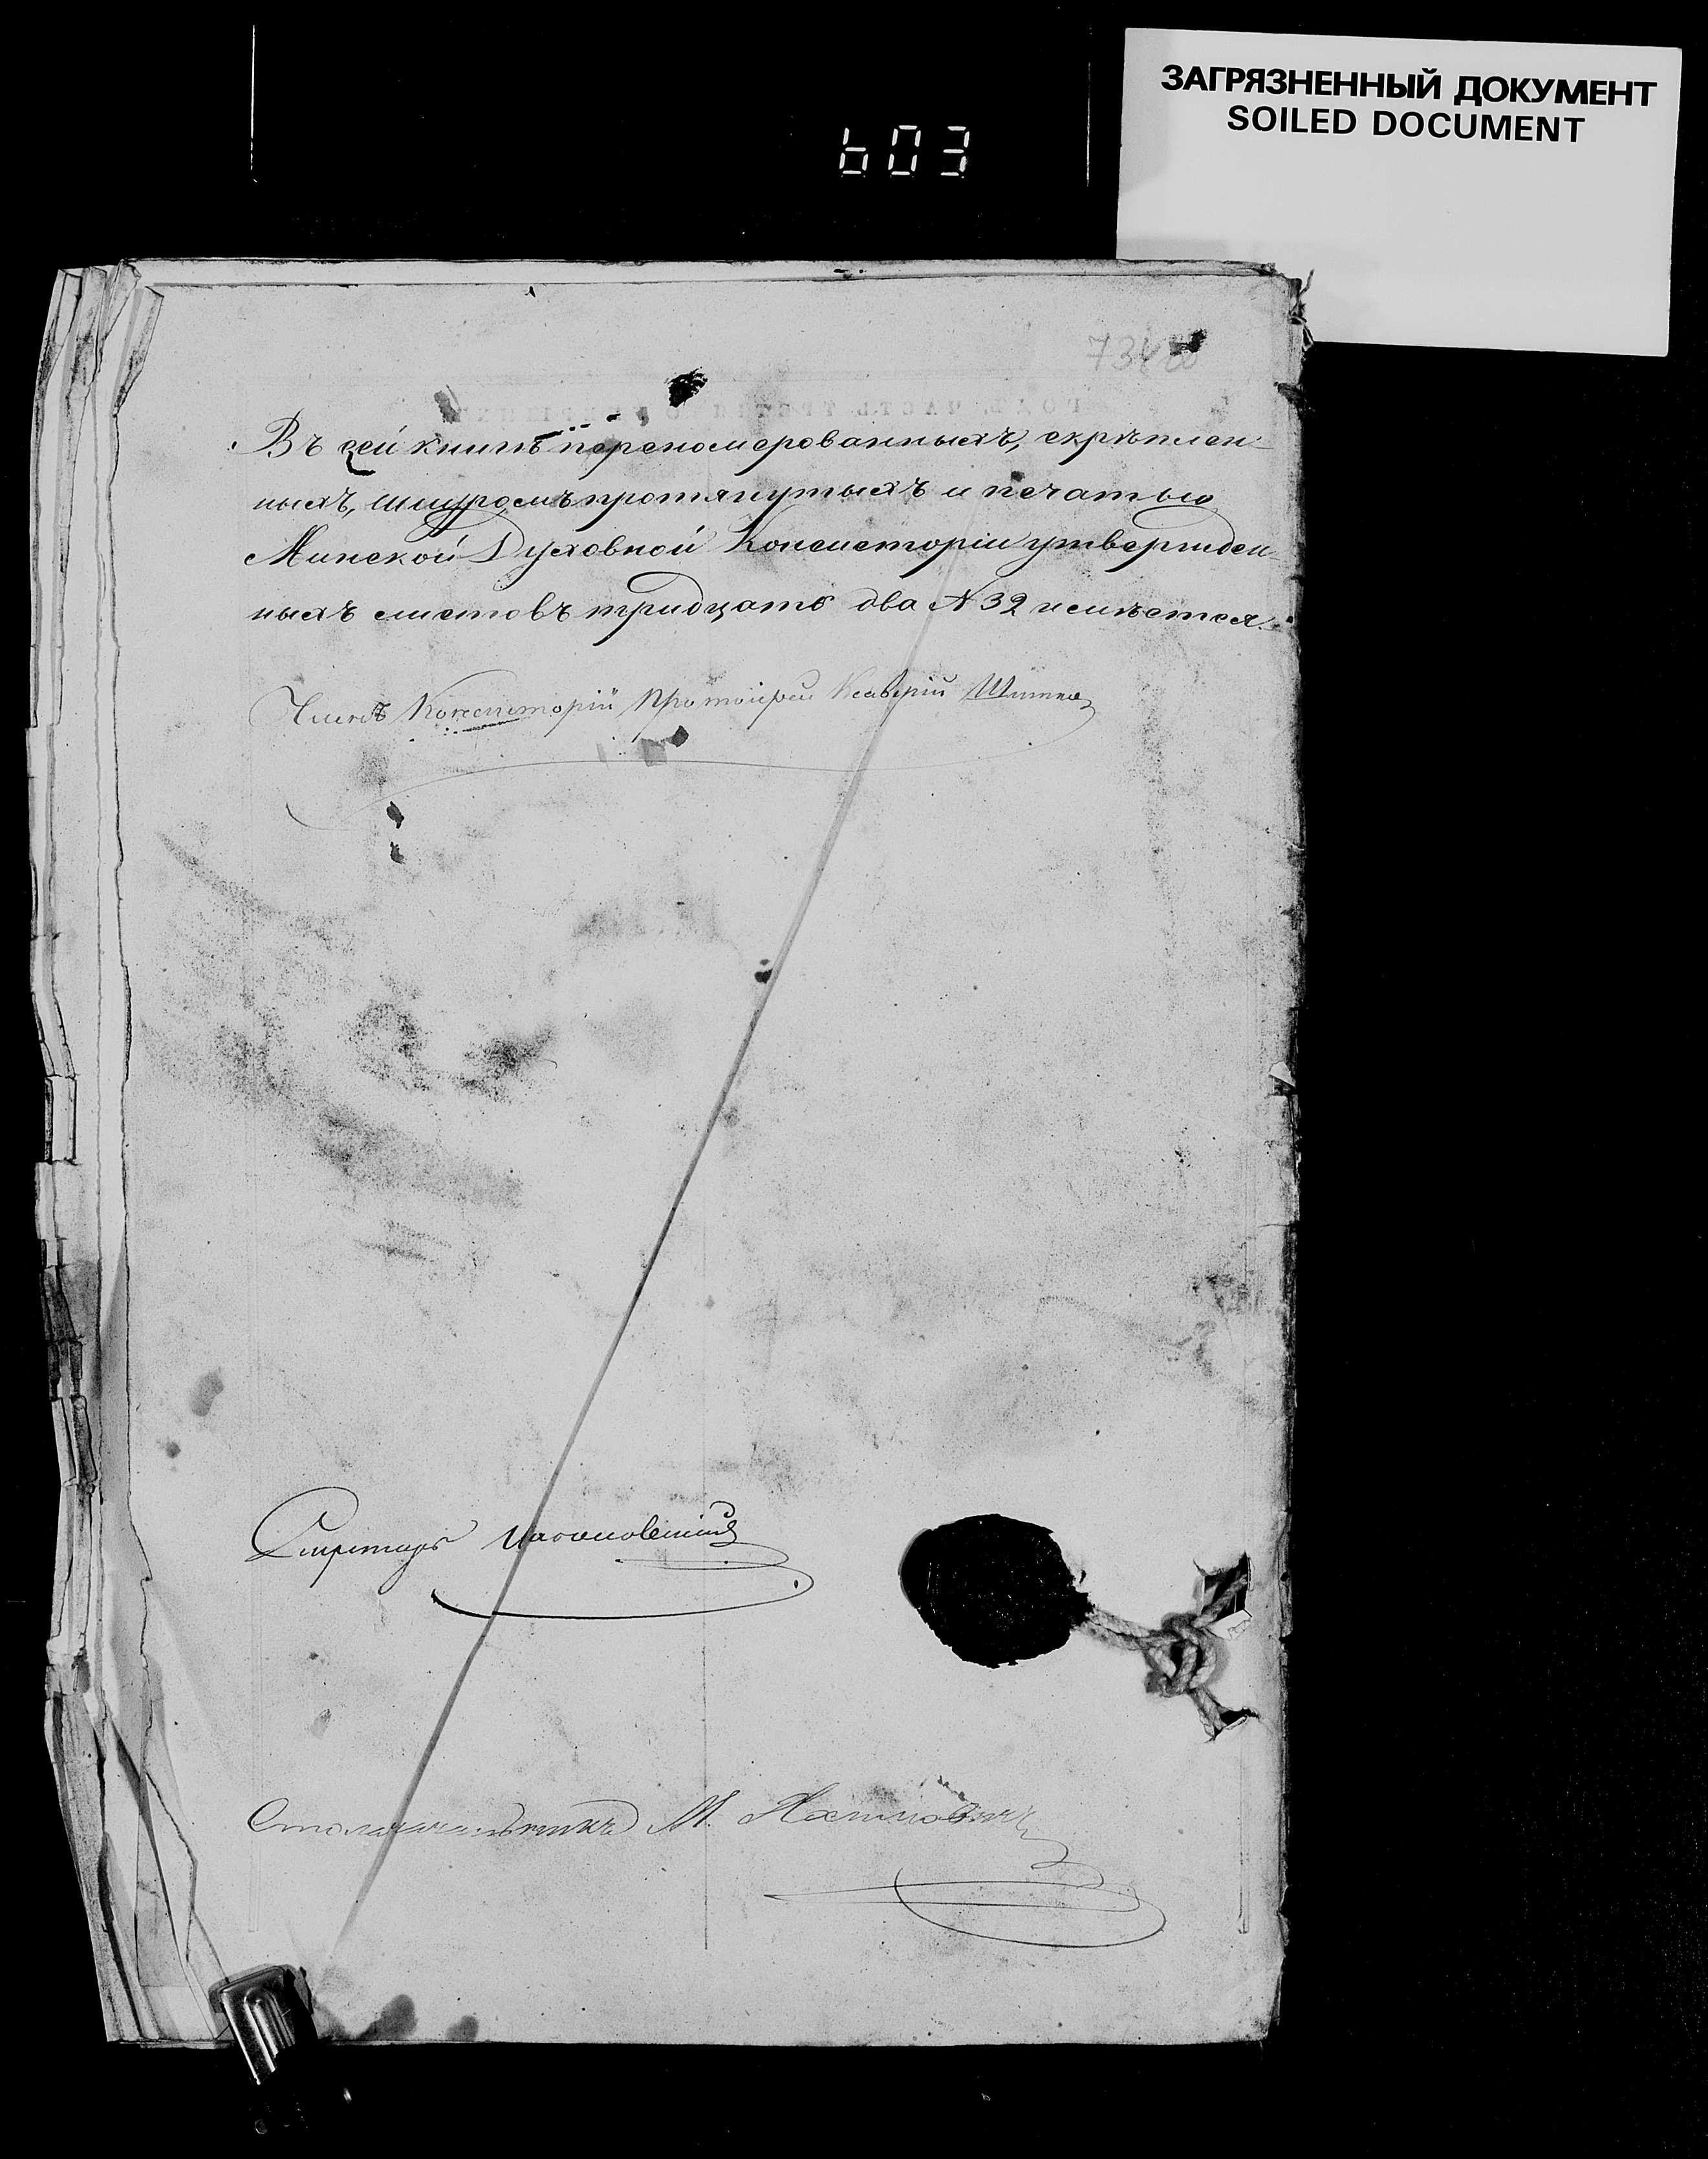 ЗАГРЯЗНЕННЫЙ ДОКУМЕНТ
SOILED DOCUMENT
603
Въ сей книгѣ переномерованныхъ, скрѣплен-
ныхъ, шнуромъ протянутыхъ и печатью
Минской Духовной Консисторіи утвержден-
ныхъ листовъ тридцать два № 32 имѣется.
Членъ Консисторіи Протоіерей
Секретарь
Столоначальникъ М.